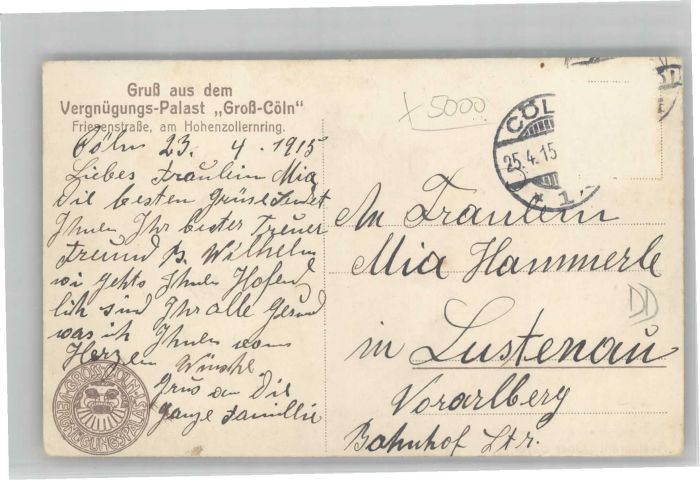 Gruß aus dem
Vergnügungs-Palast „Groß-Cöln"
Friesenstraße, am Hohenzollernring.
Cöln 23. 4. 1915
Liebes Fraulein Mia
Die besten Grüse sendet
Ihnen Ihr bester Treuer
Freund B. Wilhelm
wi gehts Ihnen Hofend
lich sind Ihr alle Gesund
was ich Ihnen vom
Herzen Wünsche
Grus an Die
ganze Familie
+5000
CÖL
25.4.15
1.
An Fraulein
Mia Hammerle
DD
in Lustenau
Vorarlberg
Bahnhof Str.
GROSS-CÖLN
VERGNÜGUNGSPALAST